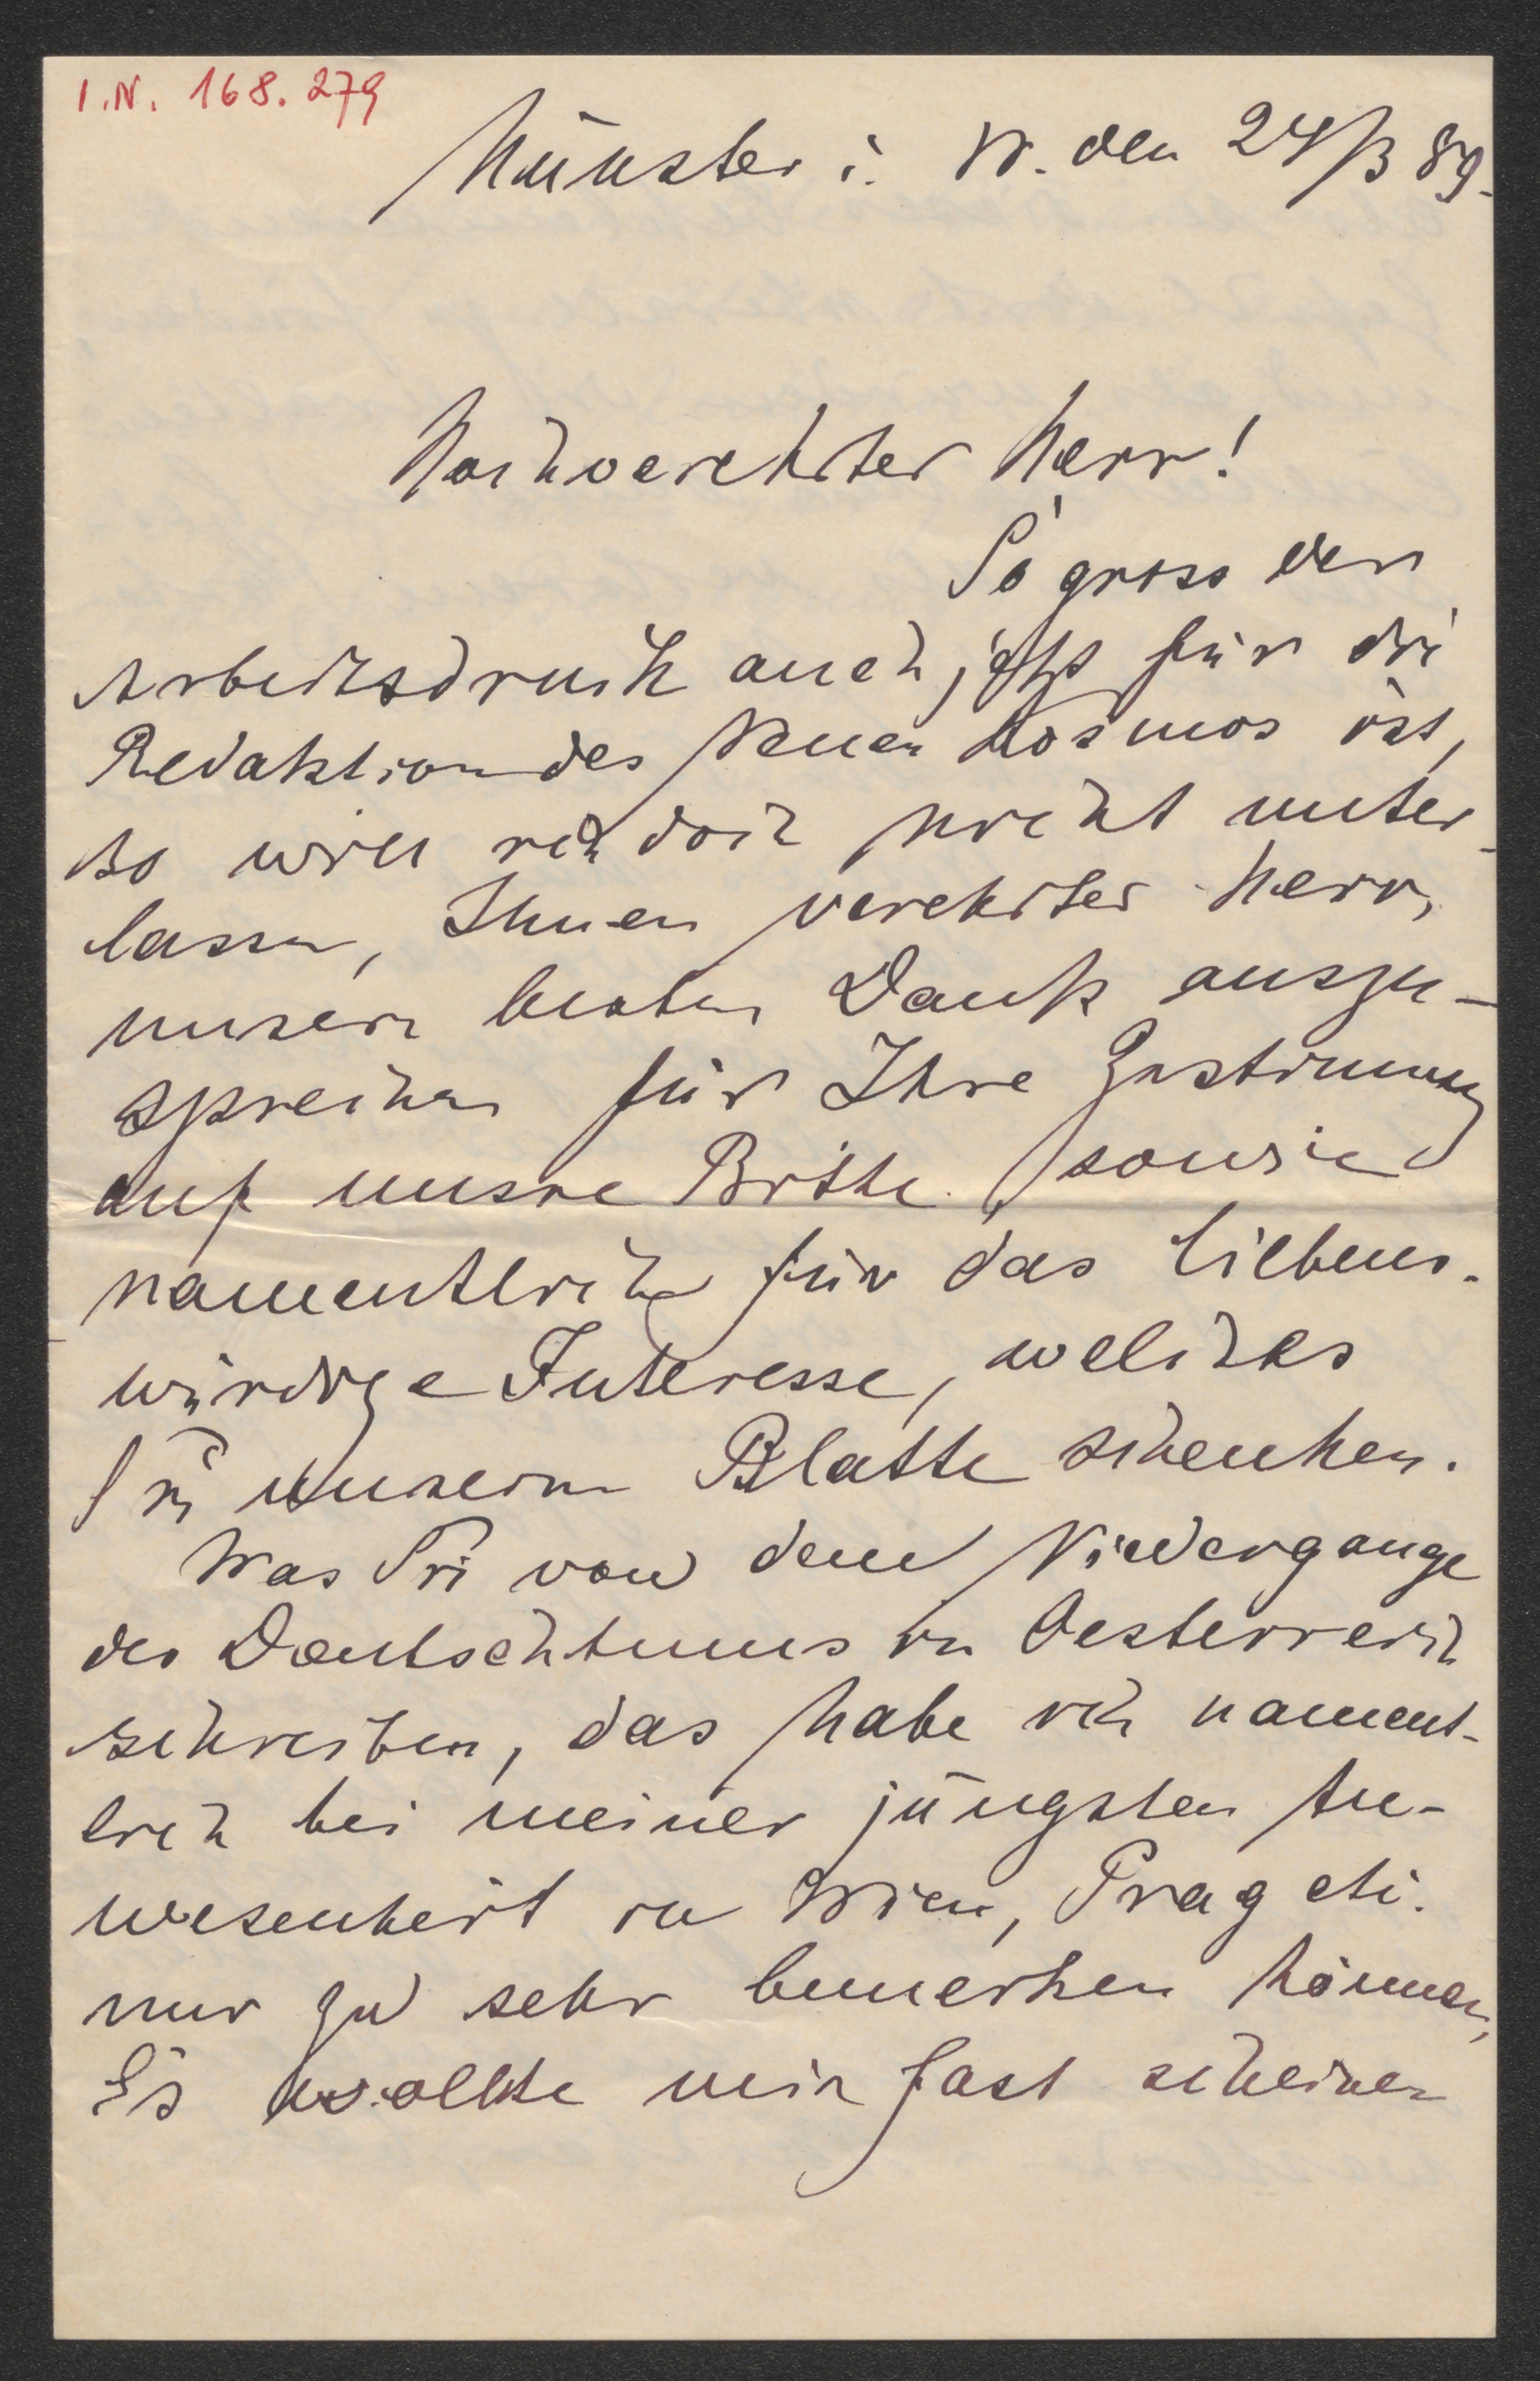 I.N. 168.279
Münster i. W. den 24/3 89.
Hochverehrter Herr!
So gross der
Arbeitsdruck auch jetzt für die
Redaktion des Neuen Kosmos ist,
so will ich doch nicht unter-
lassen, Ihnen verehrter Herr,
unsern besten Dank auszu-
sprechen für Ihre Zustimmung
auf unsre Bitte sowie
namentlich für das liebens-
würdige Interesse, welches
Sie unserm Blatte schenken.
Was Sie von dem Niedergange
des Deutschtums in Oesterreich
schreiben, das habe ich nament-
lich bei meiner jüngsten An-
wesenheit in Wien, Prag etc.
nur zu sehr bemerken können,
Es wollte mir fast scheinen